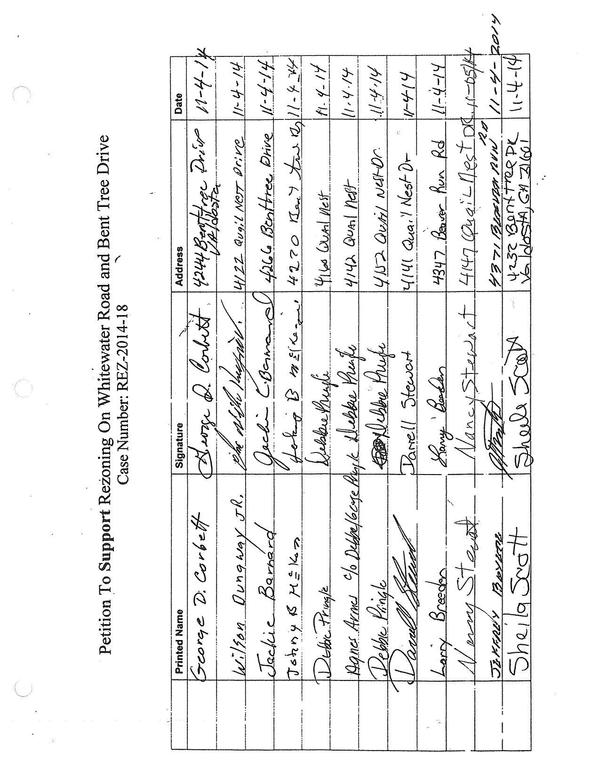 Petition To Support Rezoning On Whitewater Road and Bent Tree Drive
Case Number: REZ-2014-18
Printed Name Signature Address Date
George D. Corbett George D. Corbett 4244 Benttree Drive Valdosta 11-4-14
Wilson Dunaway JR. 4122 Quail Nest Drive 11-4-14
Jackie Barnard Jackie L Barnard 4266 Benttree Drive 11-4-14
Johny B 4270 11-4-14
Debbie Pringle Debbie Pringle 4160 Quail Nest 11-4-14
Agnes Armes c/o Debbie/George Pringle Debbie Pringle 4142 Quail Nest 11-4-14
Debbie Pringle Debbie Pringle 4152 Quail Nest Dr. 11-4-14
Darrell Stewart Darrell Stewart 4141 Quail Nest Dr 11-4-14
Larry Breeden Larry Breeden 4347 Beaver Run Rd 11-4-14
Nancy Stewart Nancy Stewart 4147 Quail Nest DR 11-05-14
Jeffrey 4371 Beaver Run RD 11-4-2014
Sheila Scott Sheila Scott 4232 Benttree DR Valdosta, GA 31601 11-4-14